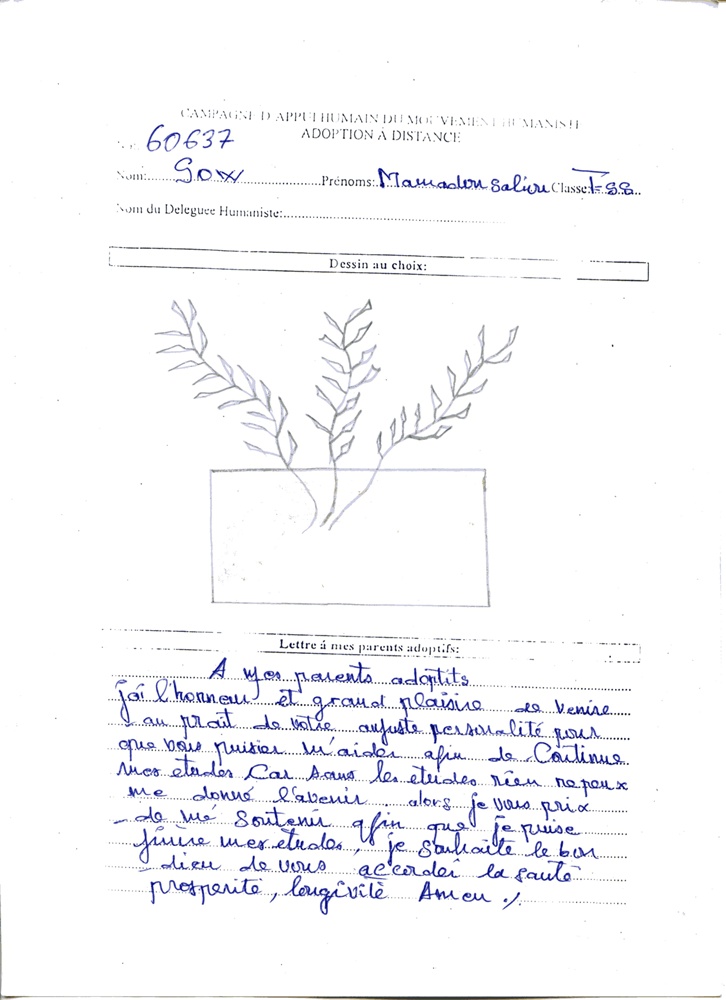 CAMPAGNE D'APPUI HUMAIN DU MOUVEMENT HUMANISTE
ADOPTION Á DISTANCE
60637
Nom: Sow Prénoms: Mamadou Saliou Classe: T-SS
Nom du Deleguee Humaniste:
Dessin au choix:
Lettre á mes parents adoptifs:
A Mes parents adoptifs
j'ai l'honneur et grand plaisire de venire
au prait de votre auguste personalité pour
que vous puisier m'aider afin de Continue
mes etudes Car sans les etudes rien ne peux
me donné l'avenir. alors je vous prix
de me soutenir afin que je puise
finire mes études, je souhaite le bon
dieu de vous accorder la santé
prosperité, longivité Amen ./.